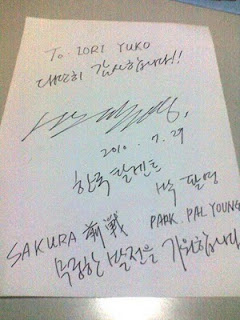 To IORI YUKO
대단히 감사합니다!!
2010. 7. 29
한국 탈렌트
박 팔영
SAKURA 新戦 PARK PAL YOUNG
무궁한 발전을 기원합니다